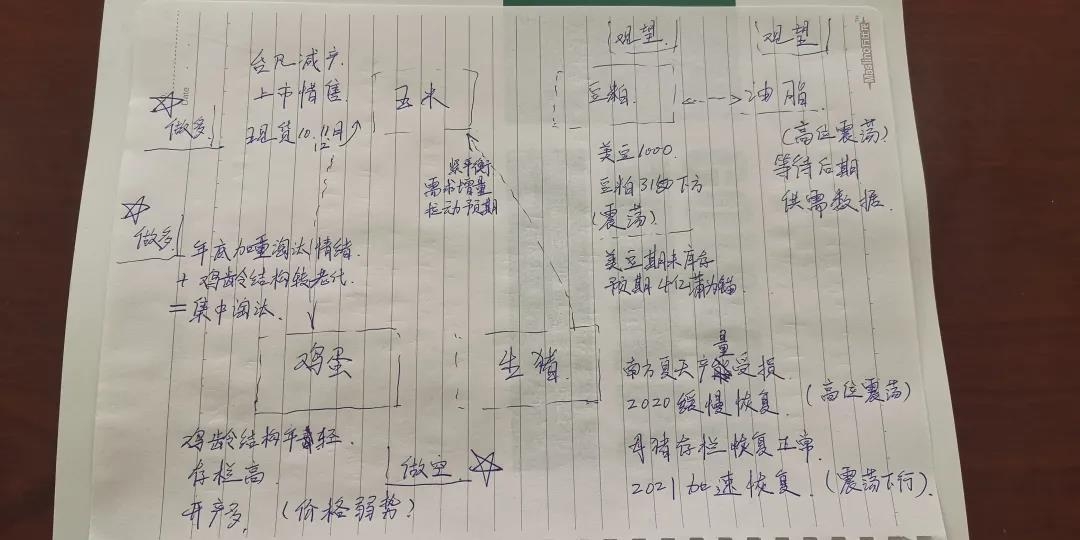 观望
观望
台风减产
上市惜售
现货10.11月
12
玉米
豆粕
油脂
做多
(高位震荡)
等待后期
供需数据
紧平衡
需求增量
拉动预期
美豆1000
豆粕3150下方
(震荡)
美豆期末库存
预期4亿蒲为锚
做多
年底加重淘汰情绪
+鸡龄结构转老化
=集中淘汰
鸡蛋
生猪
南方夏天产量受损
2020缓慢恢复 (高位震荡)
母猪存栏恢复正常
2021加速恢复 (震荡下行)
鸡龄结构年轻
存栏高
开产多 (价格弱势)
做空